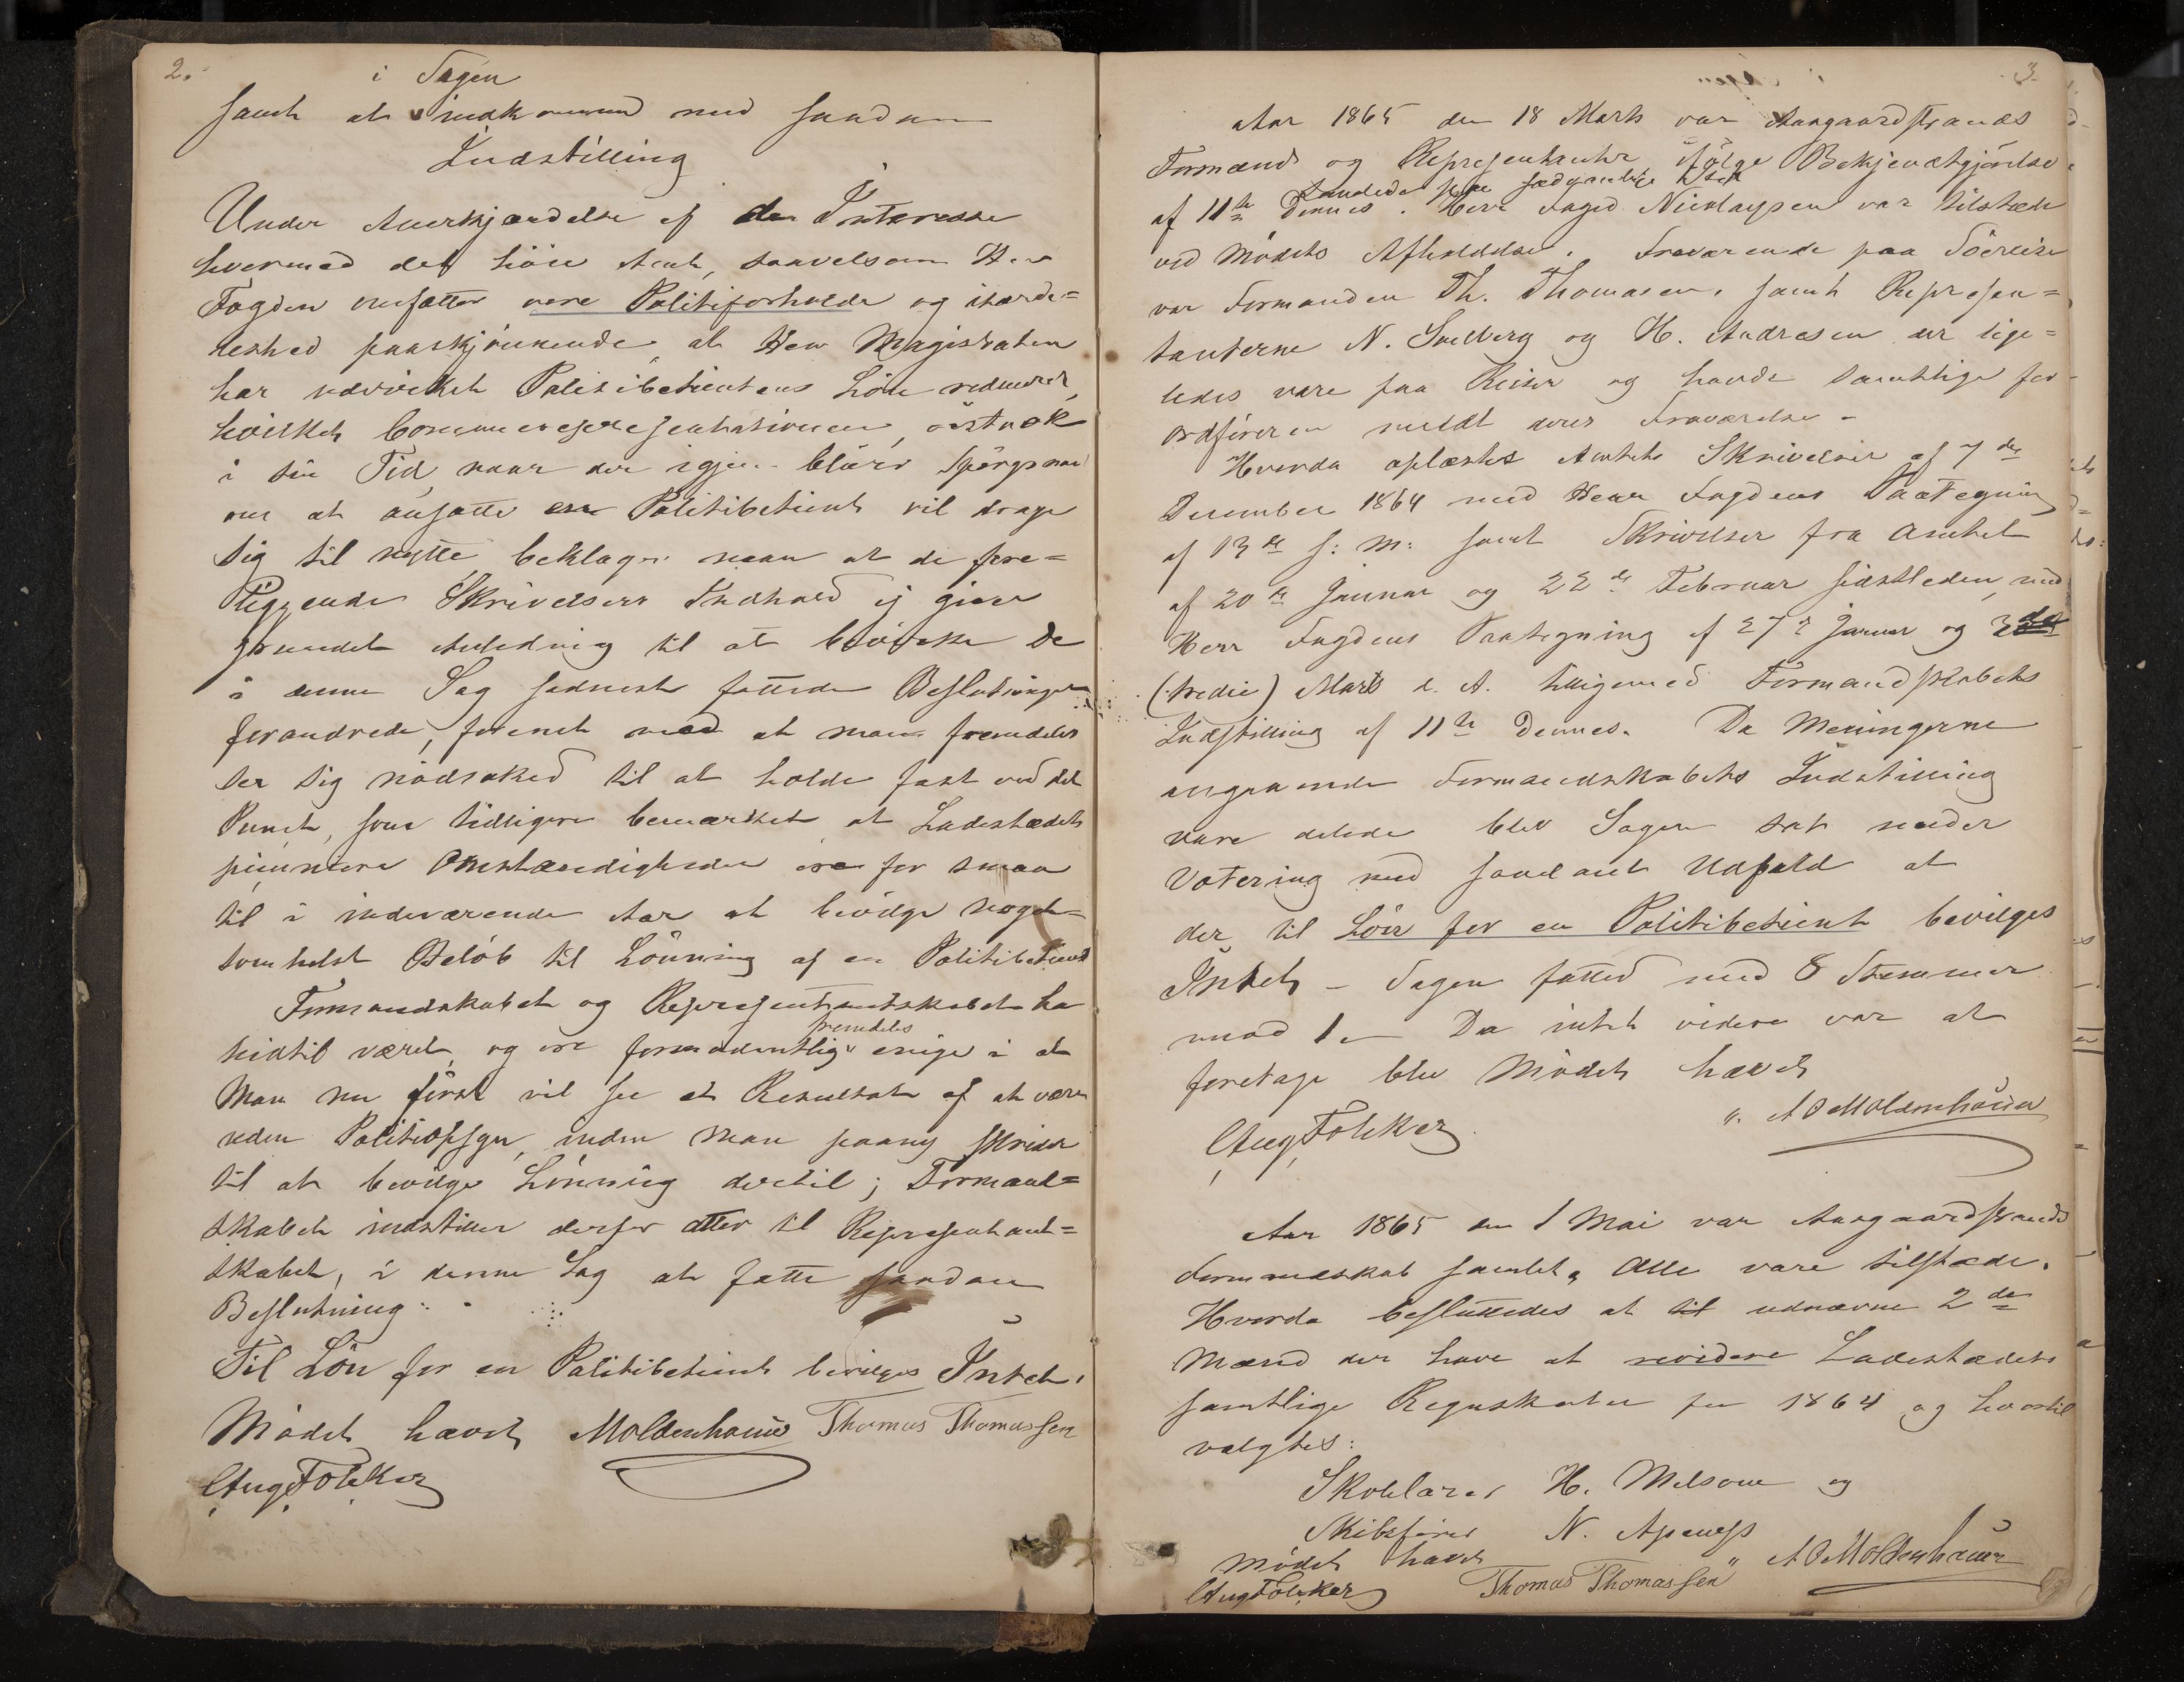 2.
i Sagen
samt at indkomme med saadan
Indstilling
Under Anerkjændelse af den Interesse
hvormed det höie Amt, saavelsom Herr
Fogden omfatter vore Politiforholde og isærde=
leshed paaskjönnende, at Herr Magistraten
har udvirket Politibetientens Lön reduceret,
hvilket Communerepresentationen, vistnok
i sin Tid, naar der igjen bliver Spörgsmaal
om at ansætte en Politibetient vil drage
sig til nytte, beklager man at de fore=
liggende Skrivelsers Indhold ej giver
grundet Anledning til at bevirke De
i denne Sag sednest fattede Beslutninger
forandrede, forenet med at man fremdeles
ser sig nödsaked til at holde fast ved det
Punct, som tidligere bemærket, at Ladestædets
pecuniære Omstændigheder ere for smaa
til i indeværende Aar at bevilge noget=
somhelst Belöb til Lönning af en Politibetient
Formandskabet og Representantskabet ha
hidtil været, og ere formodentlig fremdeles enige i at
Man nu först vil see et Resultat af at være
uden Politiopsyn, inden Man paany skrider
til at bevilge Lönning dertil; Formand=
skabet indstiller derfor atter til Representant=
skabet, i denne Sag at fatte saadan
Beslutning:
Til Lön for en Politibetient bevilges Intet.
Mödet hævet Moldenhauer Thomas Thomassen
Aug Fölcker
3.
Aar 1865 den 18 Marts var Aasgaardstrands
Formænd og Representanter ifölge Bekjendtgjörelse
af 11te Dennes samlede paa sædvanlige Sted. Herr Foged Nicolaysen var tilstæde
ved Mödets Afholdelse. Fraværende paa Söereise
var Formanden Th. Thomasen, samt Represen=
tanterne N. Solberg og H. Andresen der lige=
ledes vare paa Reiser og havde samtlige for
Ordföreren meldt deres Fraværelse -
Hvorda oplæstes Amtets Skrivelse af 7de
December 1864 med Herr Fogdens Paategning
af 13de s: M: samt Skrivelser fra Amtet
af 20de Januar og 22de Februar sidstleden, med
Herr Fogdens Paategning af 27de Januar og 3die
(tredie) Marts d. A. tilligemed Formandskabets
Indstilling af 11te Dennes. Da Meningerne
angaaende Formandskabets Indstilling
vare delede blev Sagen sat under
Votering med saadant Udfald at
der til Lön for en Politibetient bevilges
Intet - Sagen fatted med 8 Stemmer
mod 1 - Da intet videre var at
foretage blev Mödet hævet
Aug Fölcker " A O Moldenhauer
Aar 1865 den 1 Mai var Aasgaardstrands
Formandskab samlet, Alle vare tilstæde.
Hvorda besluttedes at til udnævne 2de
Mænd der have at revidere Ladestædets
samtlige Regnskaber for 1864 og hvortil
valgtes:
Skolelærer H. Melsom og
Skibsförer N. Apenæs
Mödet hævet " A O Moldenhauer
Aug Fölcker Thomas Thomassen